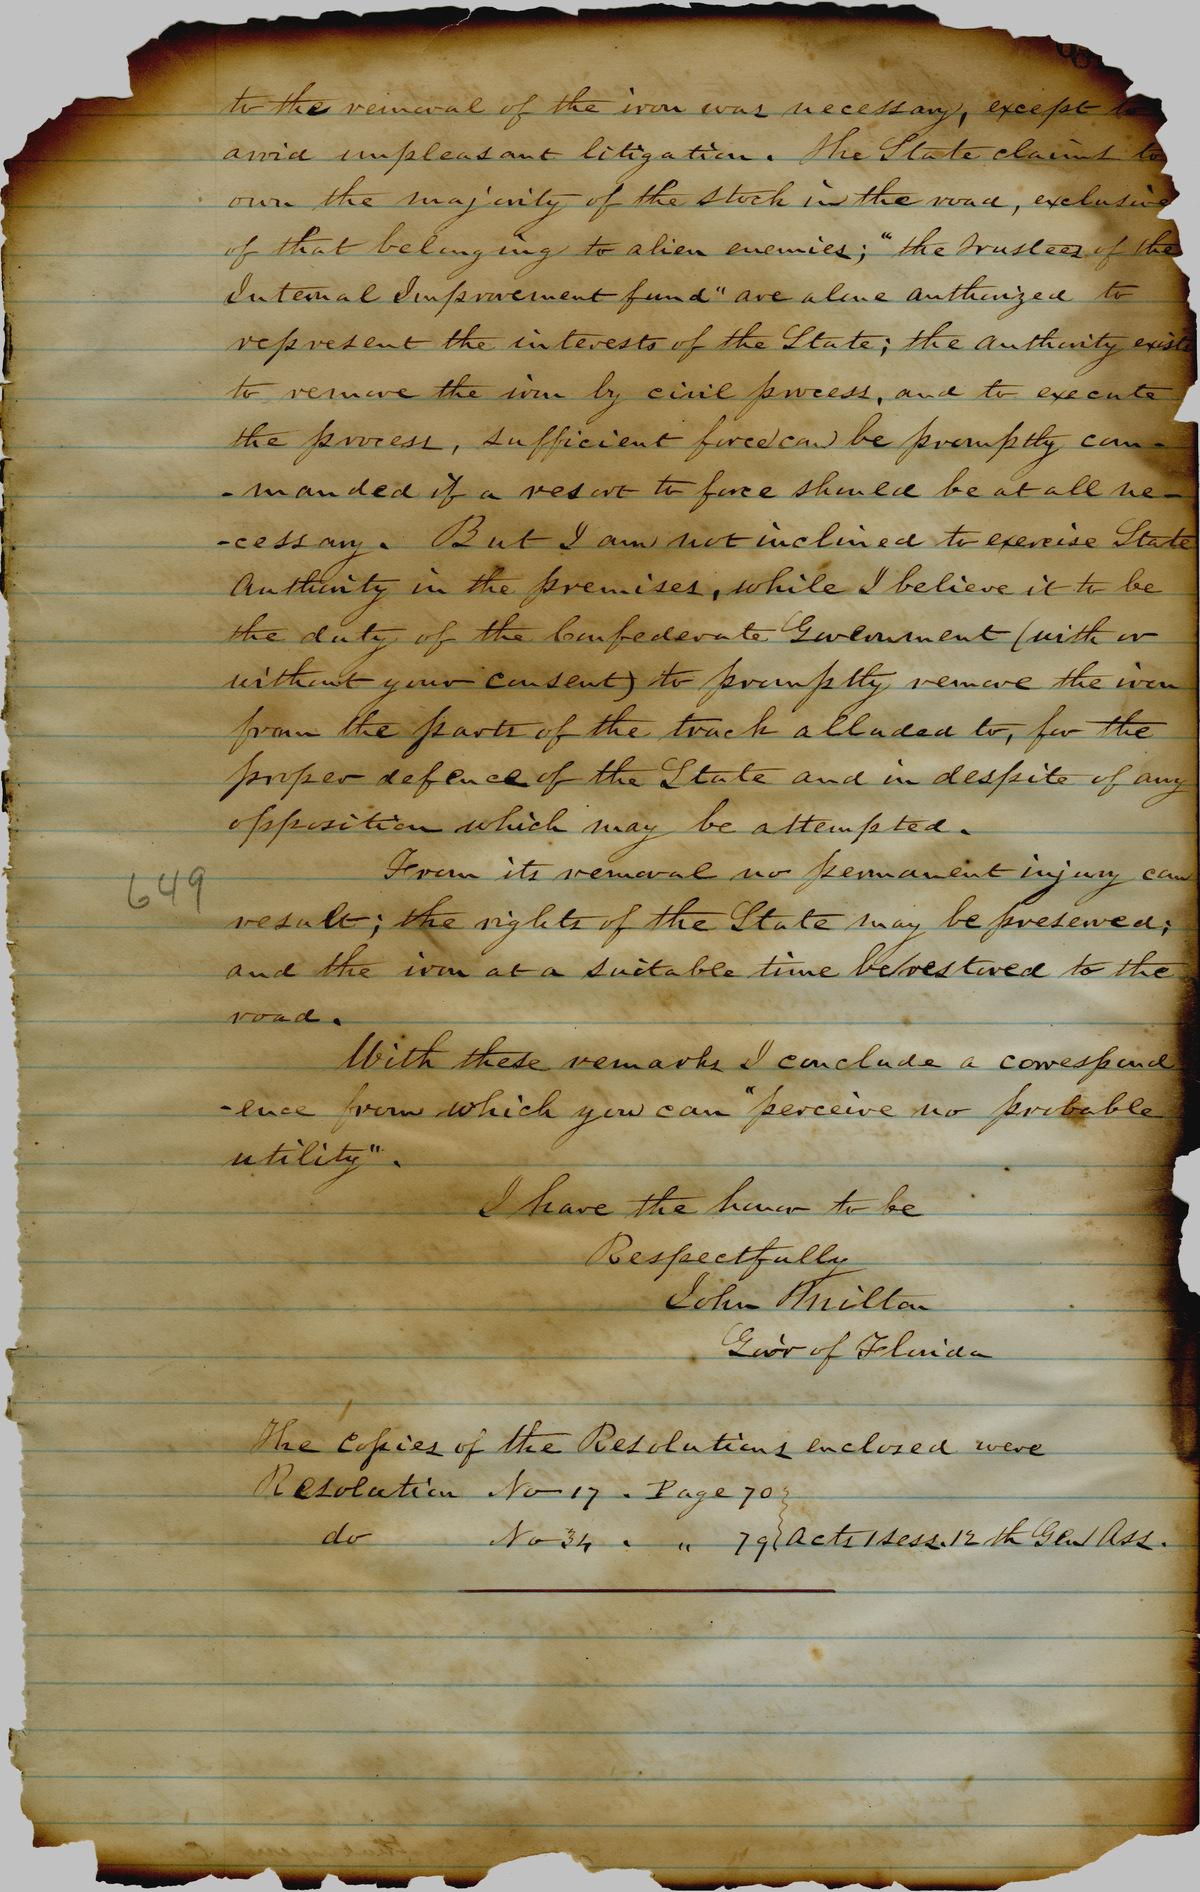 to the removal of the iron was necessary, except to
avoid unpleasant litigation. The State claims to
own the majority of the stock in the road, exclusive
of that belonging to alien enemies; "the Trustees of the
Internal Improvement fund" are alone authorized to
represent the interests of the State; the authority exists
to remove the iron by civil process, and to execute
the process, sufficient force can be promptly com-
-manded if a resort to force should be at all ne-
-cessary. But I am not inclined to exercise State
Authority in the premises, while I believe it to be
the duty of the Confederate Government (with or
without your consent) to promptly remove the iron
from the parts of the track alluded to, for the
proper defence of the State and in despite of any
opposition which may be attempted.
From its removal no permanent injury can
649
result; the rights of the State may be preserved;
and the iron at a suitable time be restored to the
road.
With these remarks I conclude a correspond
-ence from which you can "perceive no probable
utility".
I have the honor to be
Respectfully
John Milton
Gov'r of Florida
The Copies of the Resolutions enclosed were
Resolution No 17 . Page 70
do No 34 . " 79 } Acts 1 sess. 12th Gen Ass.